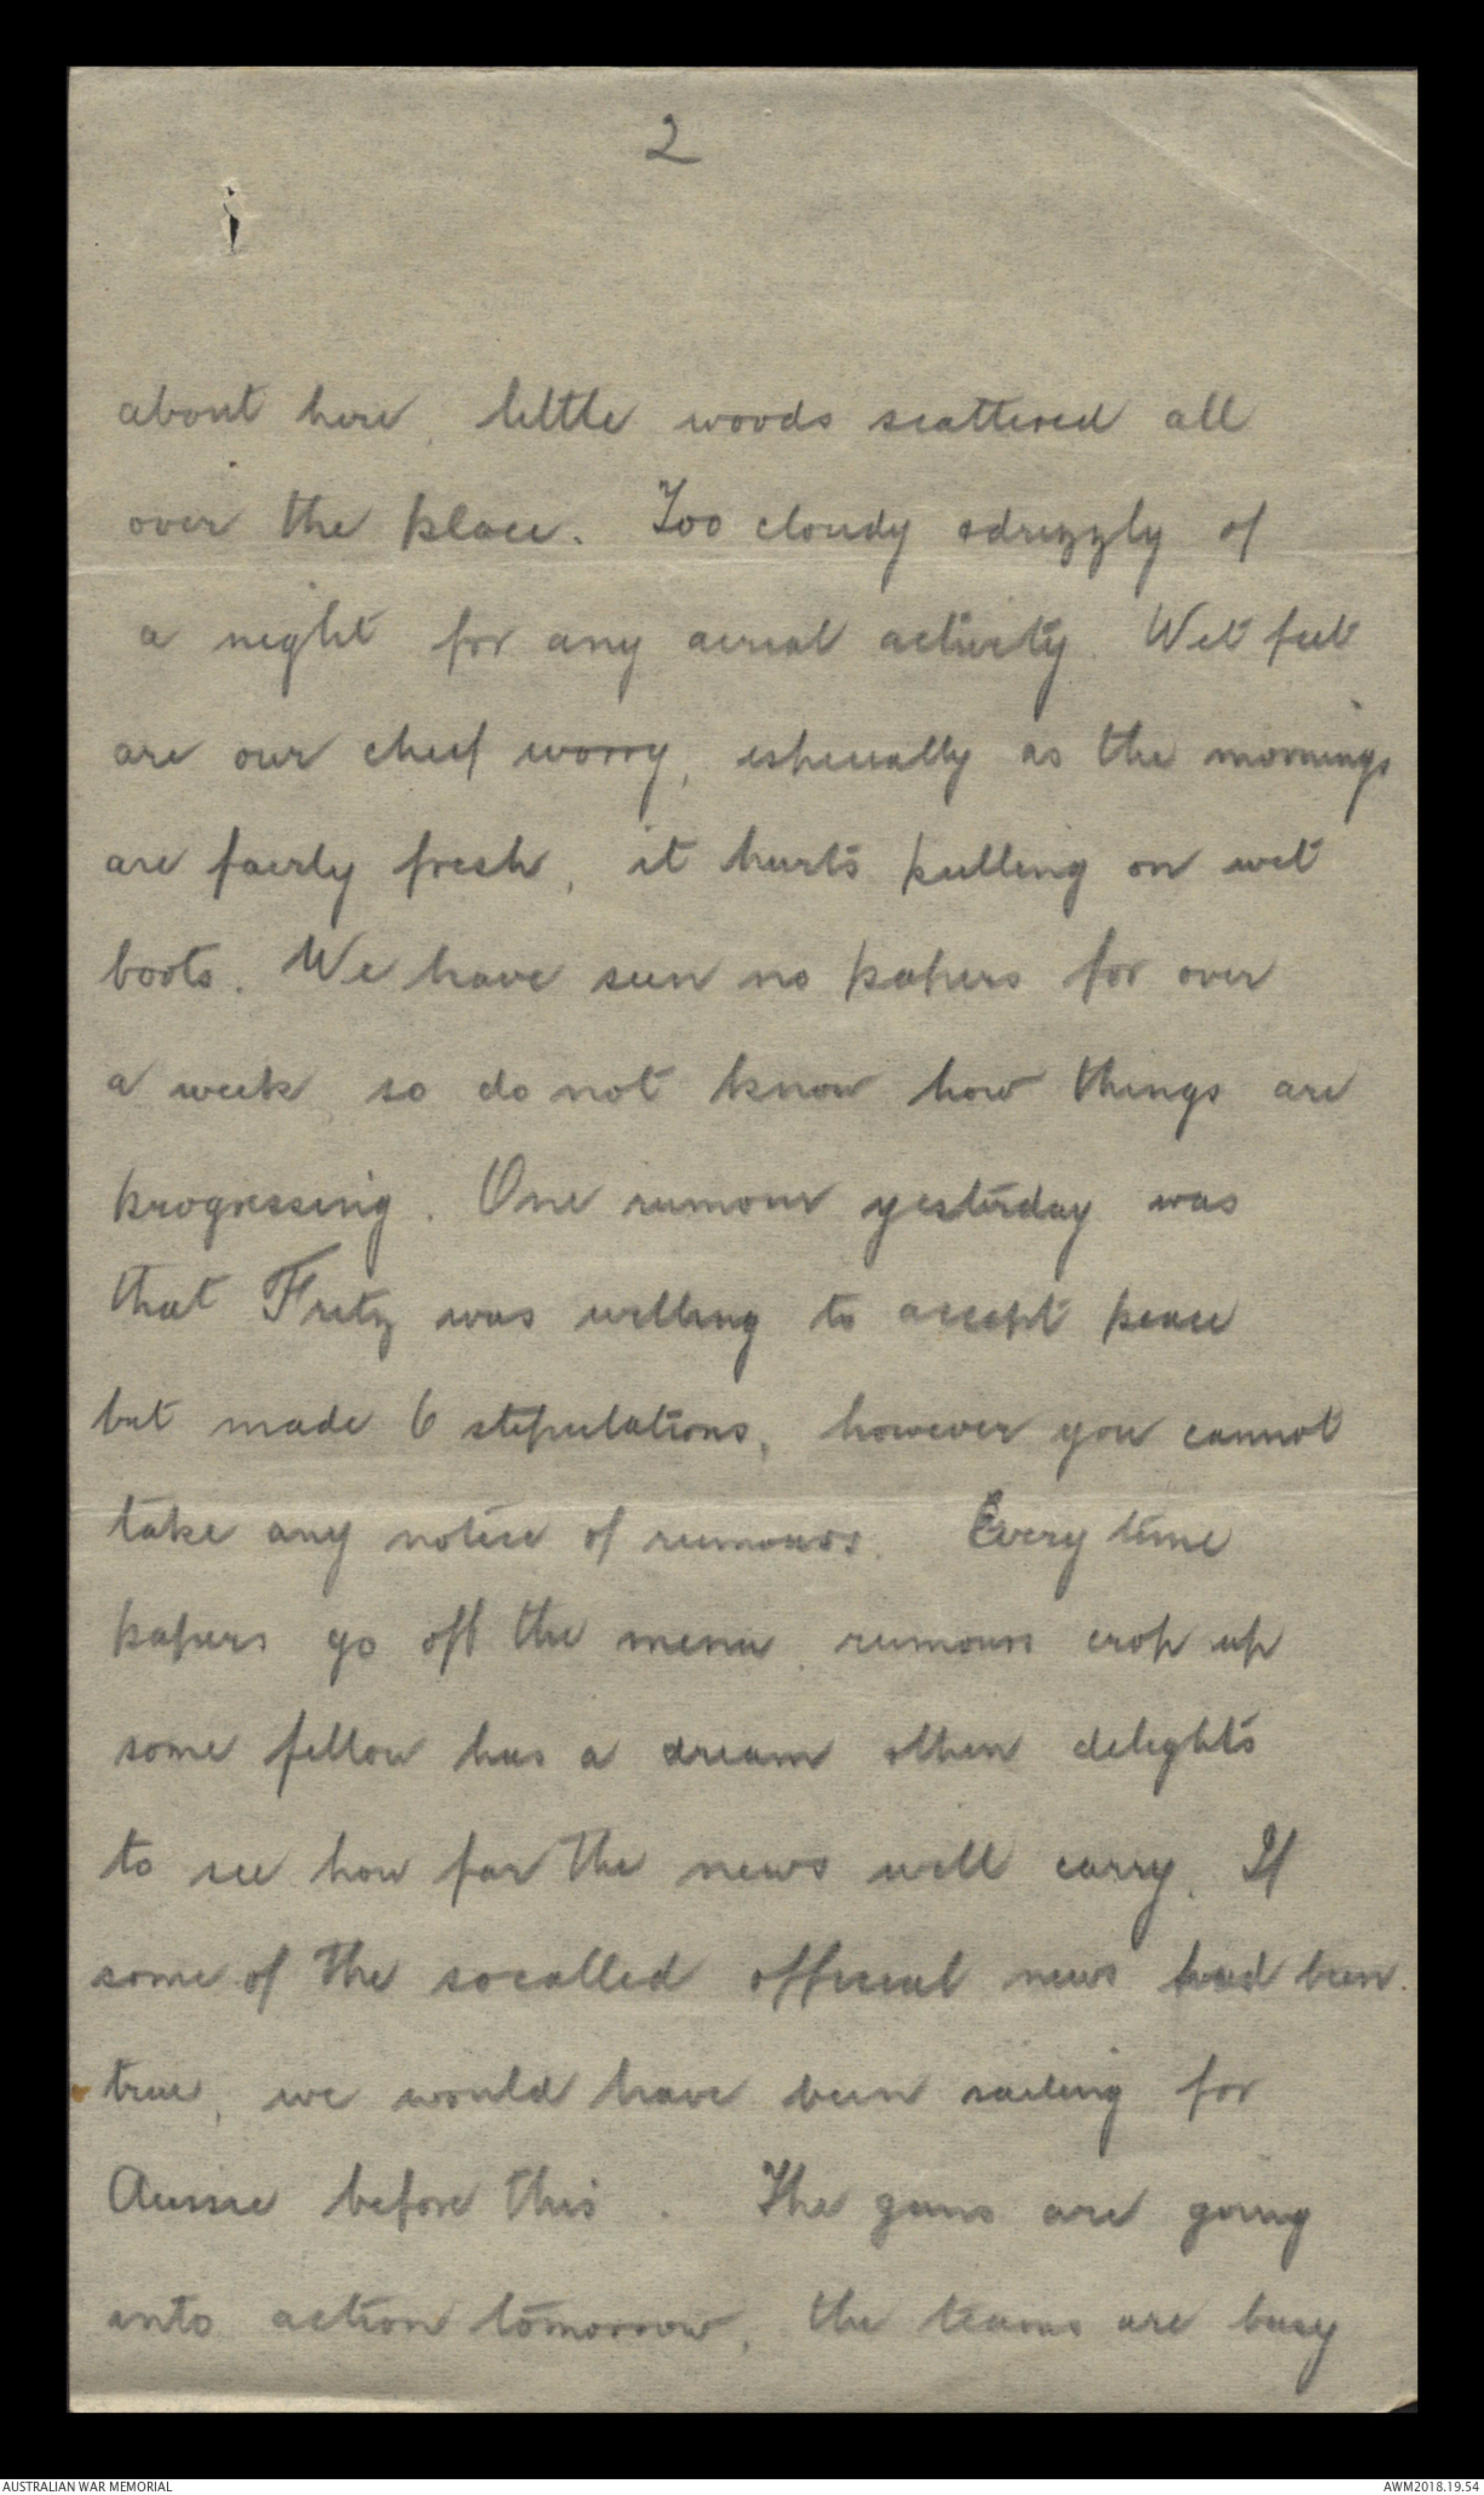 2
about here, little woods scattered all
over the place. Too cloudy & drizzly of
a night for any aerial activity. Wet feet
are our chief worry, especially as the mornings
are fairly fresh, it hurts pulling on wet
boots. We have seen no papers for over
a week so do not know how things are
progressing. One rumour yesterday was
that Fritz was willing to accept peace
but made 6 stipulations, however you cannot
take any notice of rumours. Every time
papers go off the menu rumours crop up
some fellow has a dream & then delights
to see how far the news will carry. If
some of the socalled official news had been
true, we would have been sailing for
Aussie before this. The guns are going
into action tomorrow, the teams are busy
AUSTRALIAN WAR MEMORIAL
AWM2018.19.54